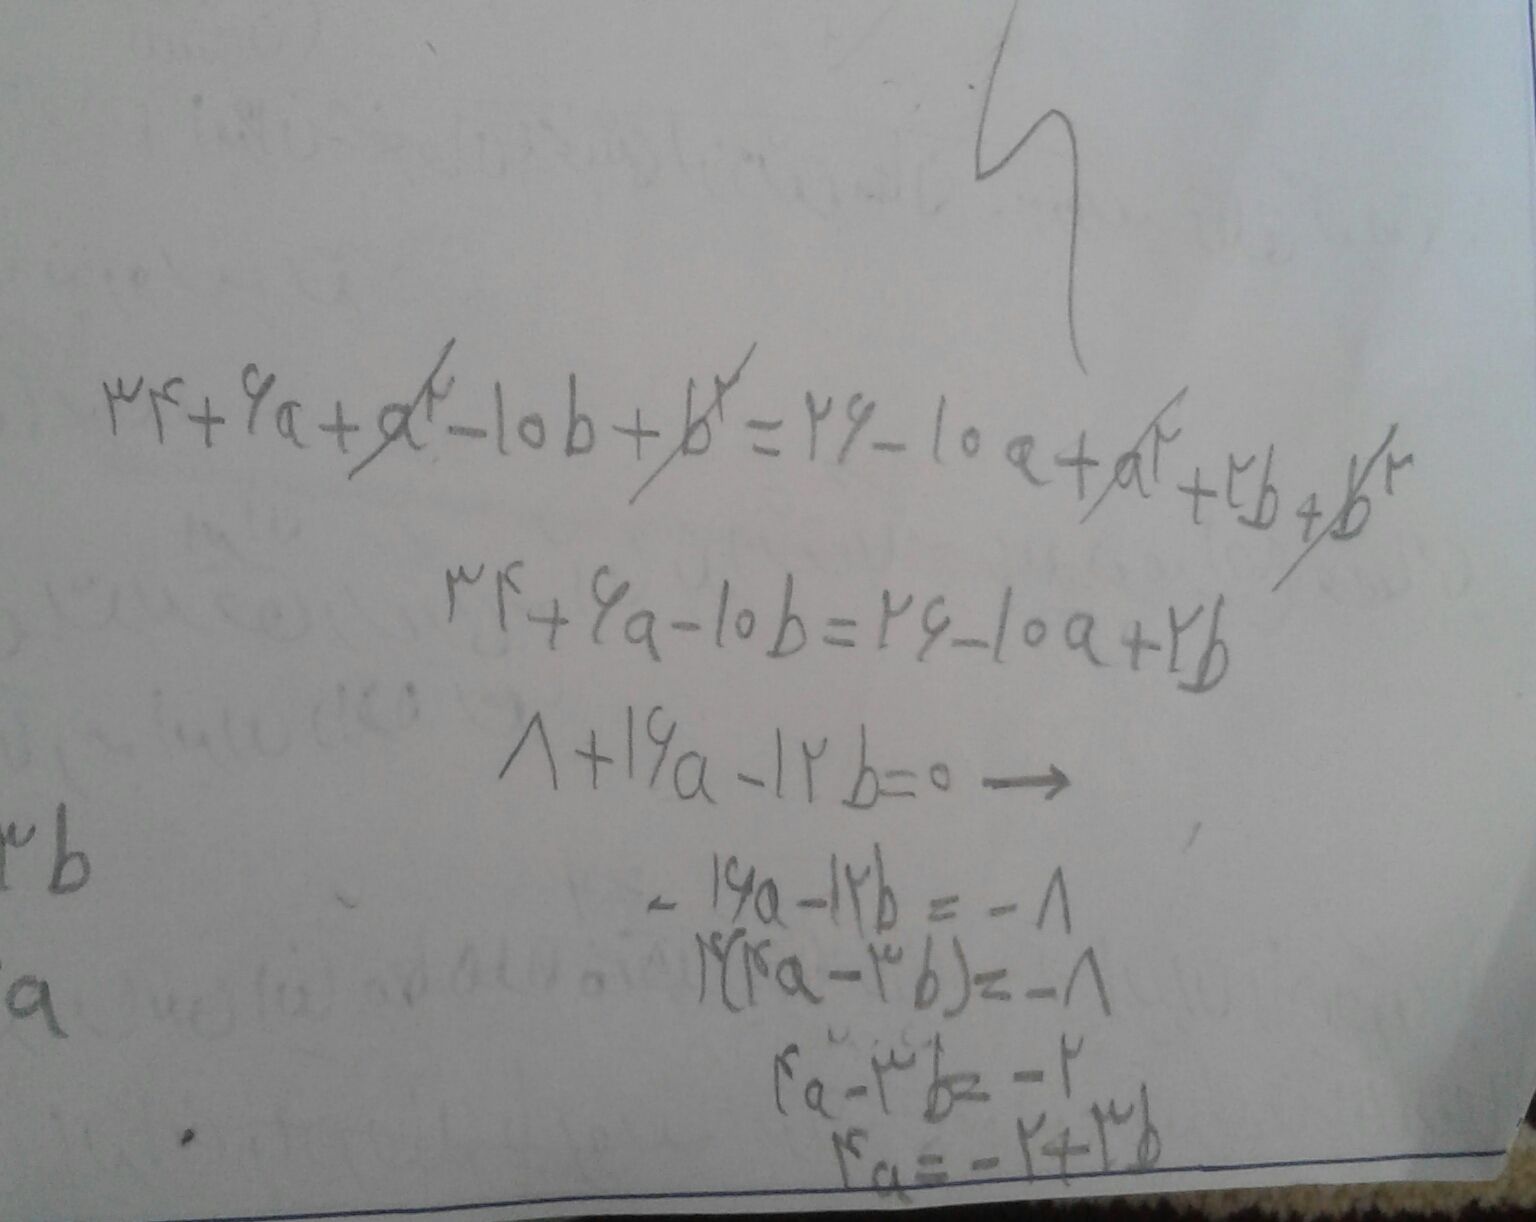 ۳۴+۶a+a^۲-۱۰b+b^۲=۲۶-۱۰a+a^۲+۲b+b^۲
۳۴+۶a-۱۰b=۲۶-۱۰a+۲b
۸+۱۶a-۱۲b=۰ →
۳b
- ۱۶a-۱۲b=-۸
a
۴(۴a-۳b)=-۸
۴a-۳b=-۲
۴a=-۲+۳b